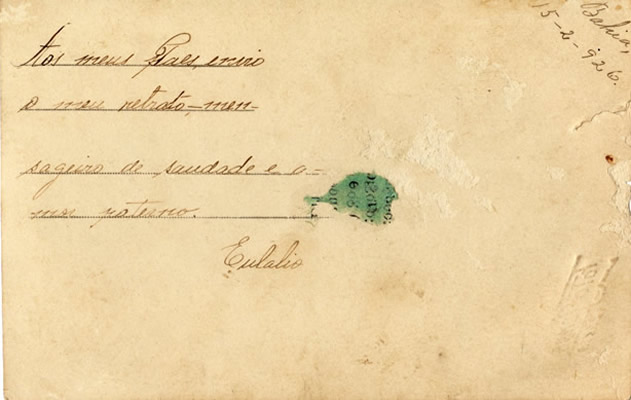 Bahia,
15-2-926.
Aos meus Paes, envio
o meu retrato-men-
sageiro de saudade e a-
mor paterno.
Eulalio